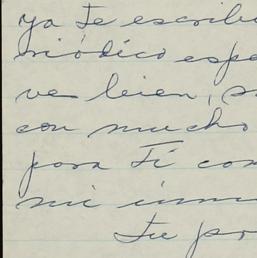 ya te escribi
riódico espe
ve bien, s
con mucho
para Ti com
mi inm
Tu pr